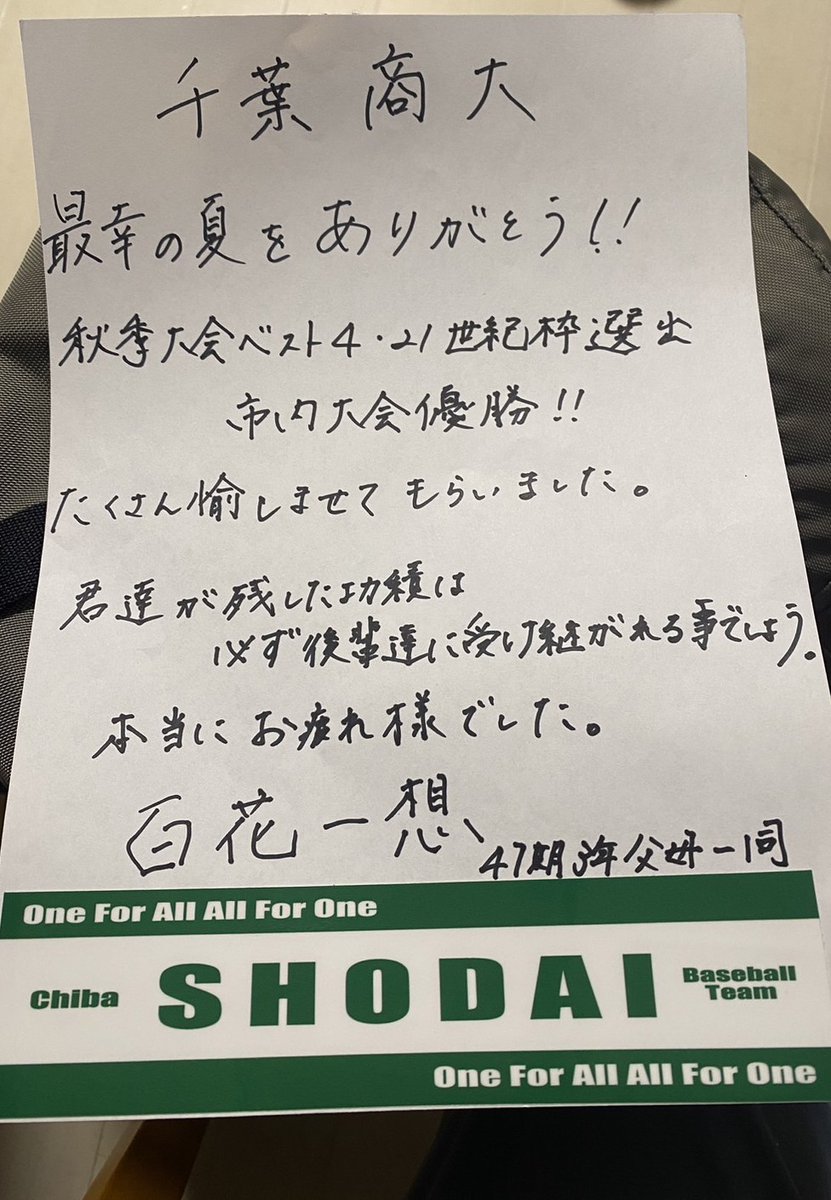 千葉商大
最幸の夏をありがとう!!
秋季大会ベスト4・21世紀枠選出
市内大会優勝!!
たくさん愉しませてもらいました。
君達が残した功績は
必ず後輩達に受け継がれる事でしょう。
本当にお疲れ様でした。
百花一想
47期3年父母一同
One For All All For One
Chiba SHODAI Baseball Team
One For All All For One